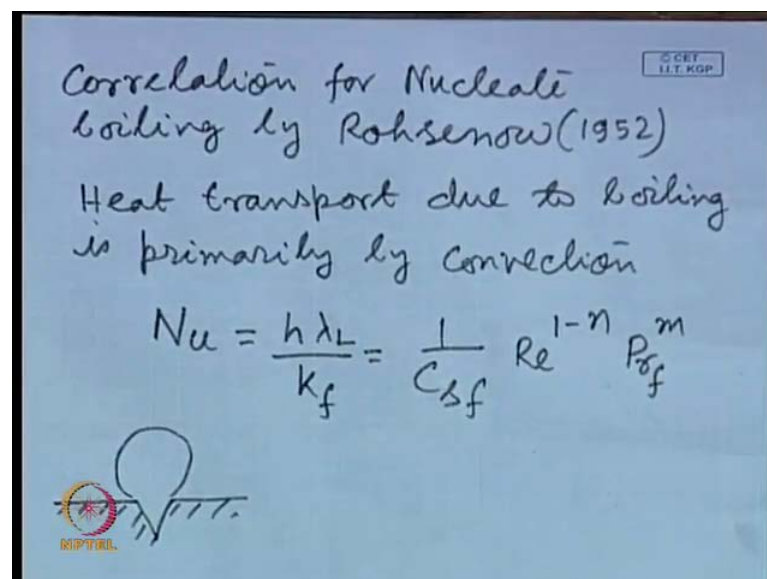 © CET
I.I.T. KGP
Correlation for Nucleate
boiling by Rohsenow (1952)
Heat transport due to boiling
is primarily by convection
Nu = hλ_L / k_f = 1 / C_sf Re^{1-n} Pr_f^m
NPTEL